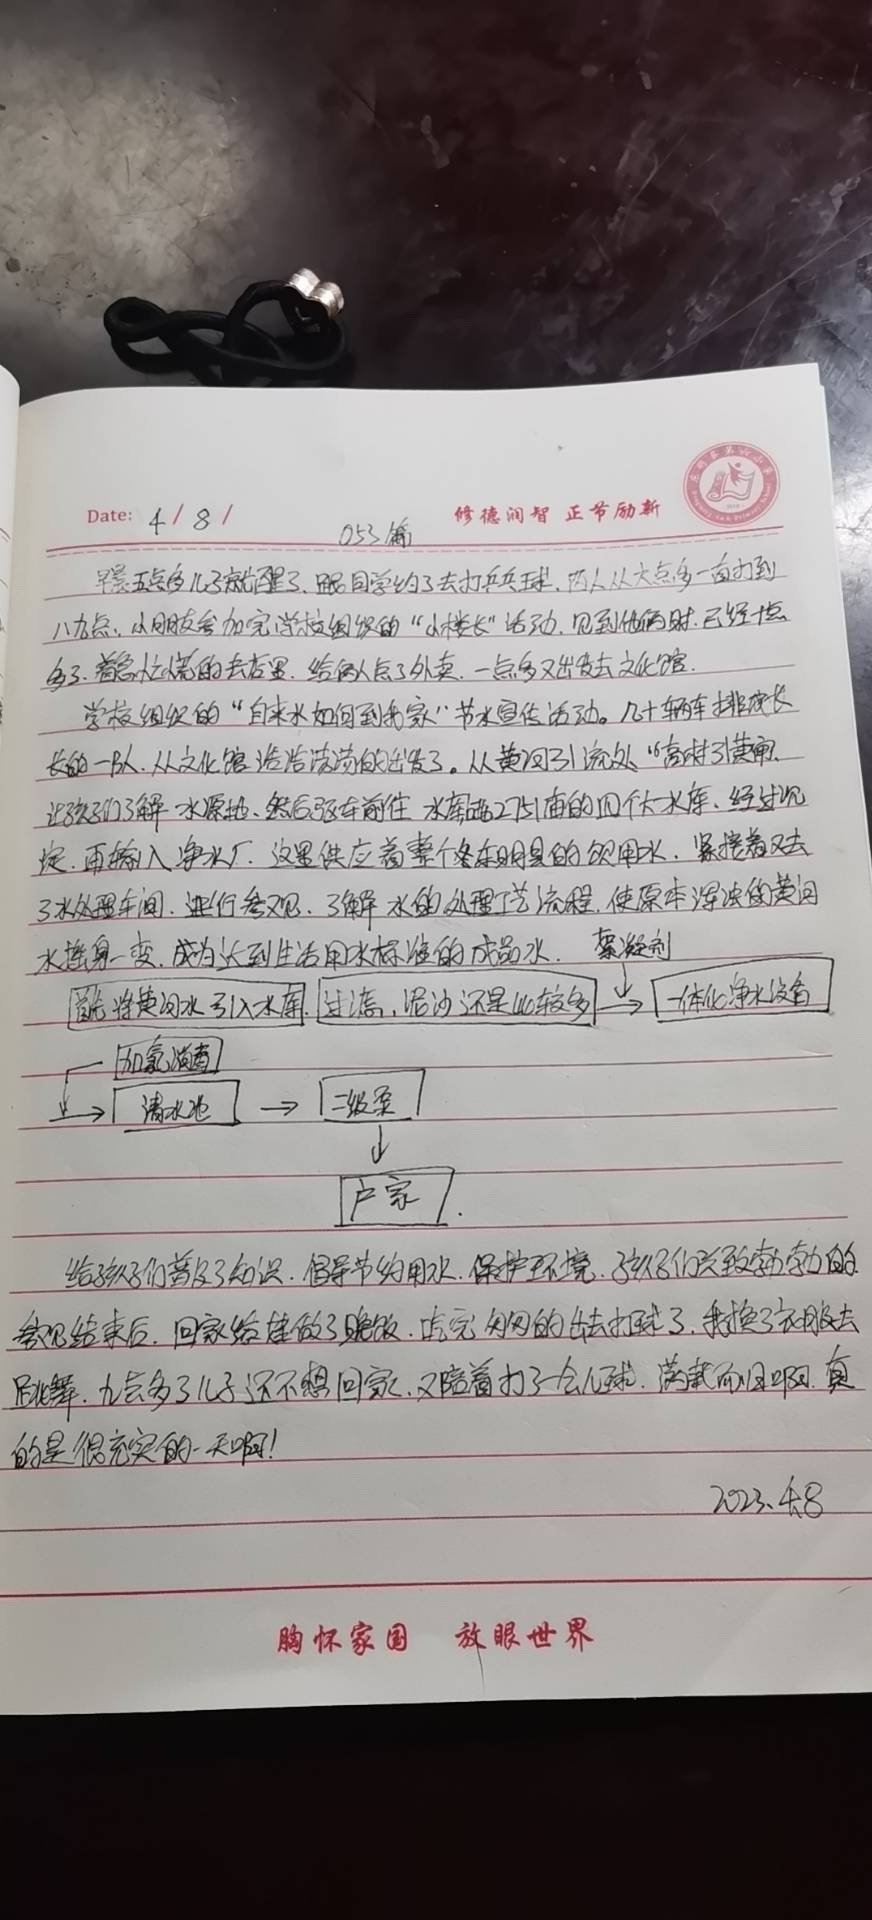 Date: 4 / 8 /
053篇
修德润智 正节励新
早晨五点多儿子就醒了，跟同学约了去打乒乓球，两人从六点多一直打到
八九点，小朋友参加完学校组织的“小楼长”活动，见到他俩时，已经十点
多了，着急忙慌的去店里，给俩人点了外卖，一点多又出发去文化馆.
学校组织的“自来水如何到我家”节水宣传活动。几十辆车排成长
长的一队，从文化馆浩浩荡荡的出发了。从黄河引流处、“高村引黄闸，
让孩子们了解水源地、然后驱车前往水库占2751亩的四个大水库、经过沉
淀，再输入净水厂，这里供应着整个东明县的饮用水，紧接着又去
了水处理车间，进行参观、了解水的处理工艺流程，使原本浑浊的黄河
水摇身一变，成为达到生活用水标准的成品水.
絮凝剂
首先将黄河水引入水库. 过滤，泥沙还是比较多 → 一体化净水设备
加氯消毒
→ 清水池 → 二级泵
↓
户家.
给孩子们普及了知识，倡导节约用水，保护环境，孩子们兴致勃勃的
参观结束后，回家给做了晚饭，吃完匆匆的出去打球了，我换了衣服去
跳舞，九点多了儿子还不想回家，又陪着打了一会儿球，满载而归啊，真
的是很充实的一天啊！
2023.4.8
胸怀家国 放眼世界